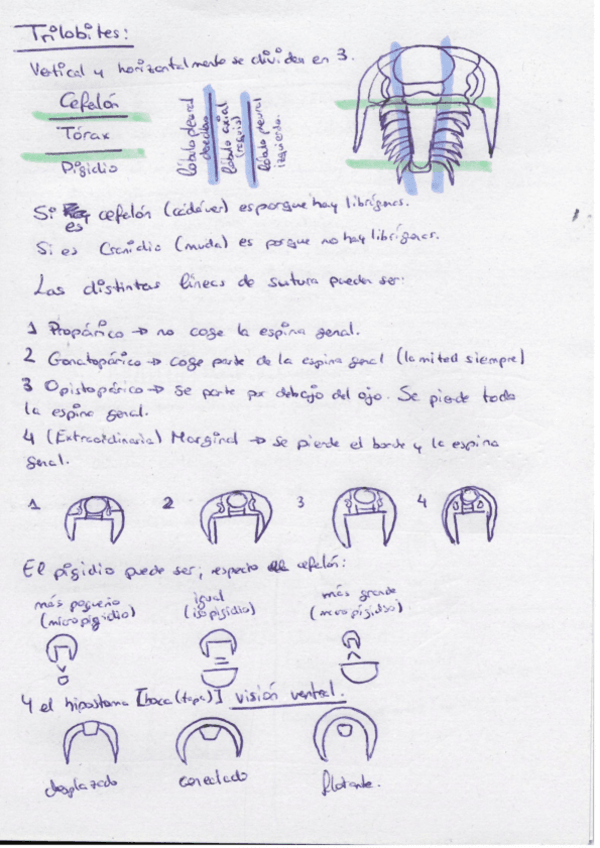 Trilobites:
Vertical y horizontalmente se dividen en 3.
Cefelón
Tórax
Pigidio
lóbulo pleural derecho
lóbulo axial (raquis)
lóbulo pleural izquierdo.
Si es cefelón (cadáver) es porque hay librígenas.
Si es Cranidio (muda) es porque no hay librígenas.
Las distintas líneas de sutura pueden ser:
1 Propárico → no coge la espina genal.
2 Gonatopárico → coge parte de la espina genal (la mitad siempre)
3 Opistopárico → se parte por debajo del ojo. Se pierde toda
la espina genal.
4 (Extraordinaria) Marginal → se pierde el borde y la espina
genal.
1 2 3 4
El pigidio puede ser, respecto al cefelón:
más pequeño (micropigidio)
igual (isopigidio)
más grande (macropigidio)
Y el hipostoma [boca (tapa)] visión ventral.
desplazado conectado flotante.